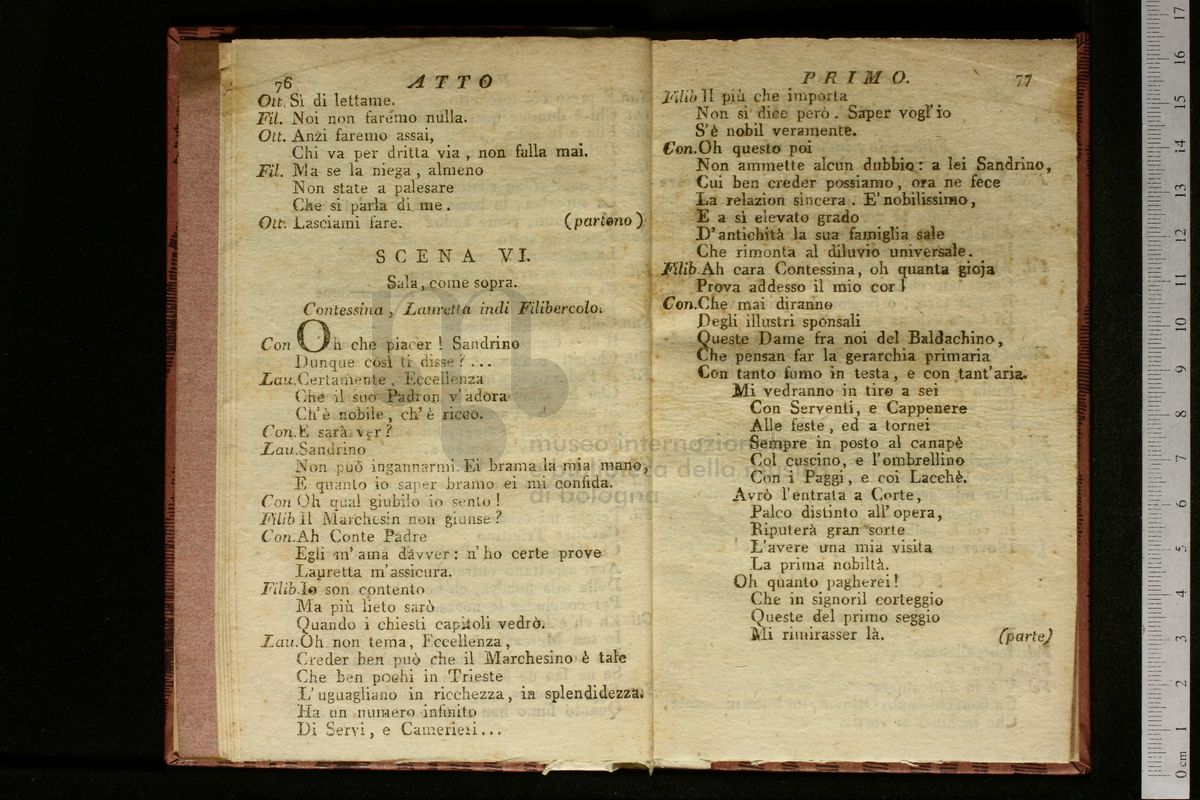 76 ATTO
Ott. Sì di lettame.
Fil. Noi non faremo nulla.
Ott. Anzi faremo assai,
Chi va per dritta via, non falla mai.
Fil. Ma se la niega, almeno
Non state a palesare
Che si parla di me.
Ott. Lasciami fare. (partono)
SCENA VI.
Sala, come sopra.
Contessina, Lauretta indi Filibercolo.
Con Oh che piacer! Sandrino
Dunque così ti disse?...
Lau. Certamente, Eccellenza
Che il suo Padron v'adora
Ch'è nobile, ch'è ricco.
Con. E sarà ver?
Lau. Sandrino
Non può ingannarmi. Ei brama la mia mano,
E quanto io saper bramo ei mi confida.
Con Oh qual giubilo io sento!
Filib Il Marchesin non giunse?
Con. Ah Conte Padre
Egli m'ama davver: n'ho certe prove
Lauretta m'assicura.
Filib. Io son contento
Ma più lieto sarò
Quando i chiesti capitoli vedrò.
Lau. Oh non tema, Eccellenza,
Creder ben può che il Marchesino è tale
Che ben pochi in Trieste
L'uguagliano in ricchezza, in splendidezza.
Ha un numero infinito
Di Servi, e Camerieri...
PRIMO. 77
Filib Il più che importa
Non si dice però. Saper vogl'io
S'è nobil veramente.
Con. Oh questo poi
Non ammette alcun dubbio: a lei Sandrino,
Cui ben creder possiamo, ora ne fece
La relazion sincera. E' nobilissimo,
E a sì elevato grado
D'antichità la sua famiglia sale
Che rimonta al diluvio universale.
Filib. Ah cara Contessina, oh quanta gioja
Prova addesso il mio cor!
Con. Che mai diranno
Degli illustri sponsali
Queste Dame fra noi del Baldachino,
Che pensan far la gerarchia primaria
Con tanto fumo in testa, e con tant'aria.
Mi vedranno in tiro a sei
Con Serventi, e Cappenere
Alle feste, ed a tornei
Sempre in posto al canapè
Col cuscino, e l'ombrellino
Con i Paggi, e coi Lacchè.
Avrò l'entrata a Corte,
Palco distinto all'opera,
Riputerà gran sorte
L'avere una mia visita
La prima nobiltà.
Oh quanto pagherei!
Che in signoril corteggio
Queste del primo seggio
Mi rimirasser là. (parte)
museo internazionale
biblioteca della musica
di bologna
0 cm 1 2 3 4 5 6 7 8 9 10 11 12 13 14 15 16 17